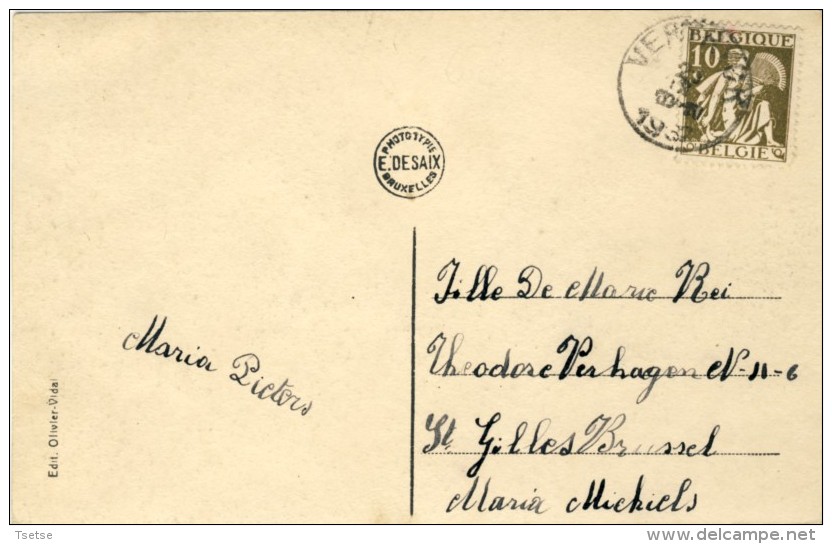 BELGIQUE
10
BELGIE
193
PHOTOTYPIE
E. DESAIX
BRUXELLES
Fille De Marie Rei
Theodore Verhagen N-11-6
St Gilles Brussel
Maria Michiels
Maria Pieters
Edit. Olivier-Vidal
Tsetse
delcampe.net